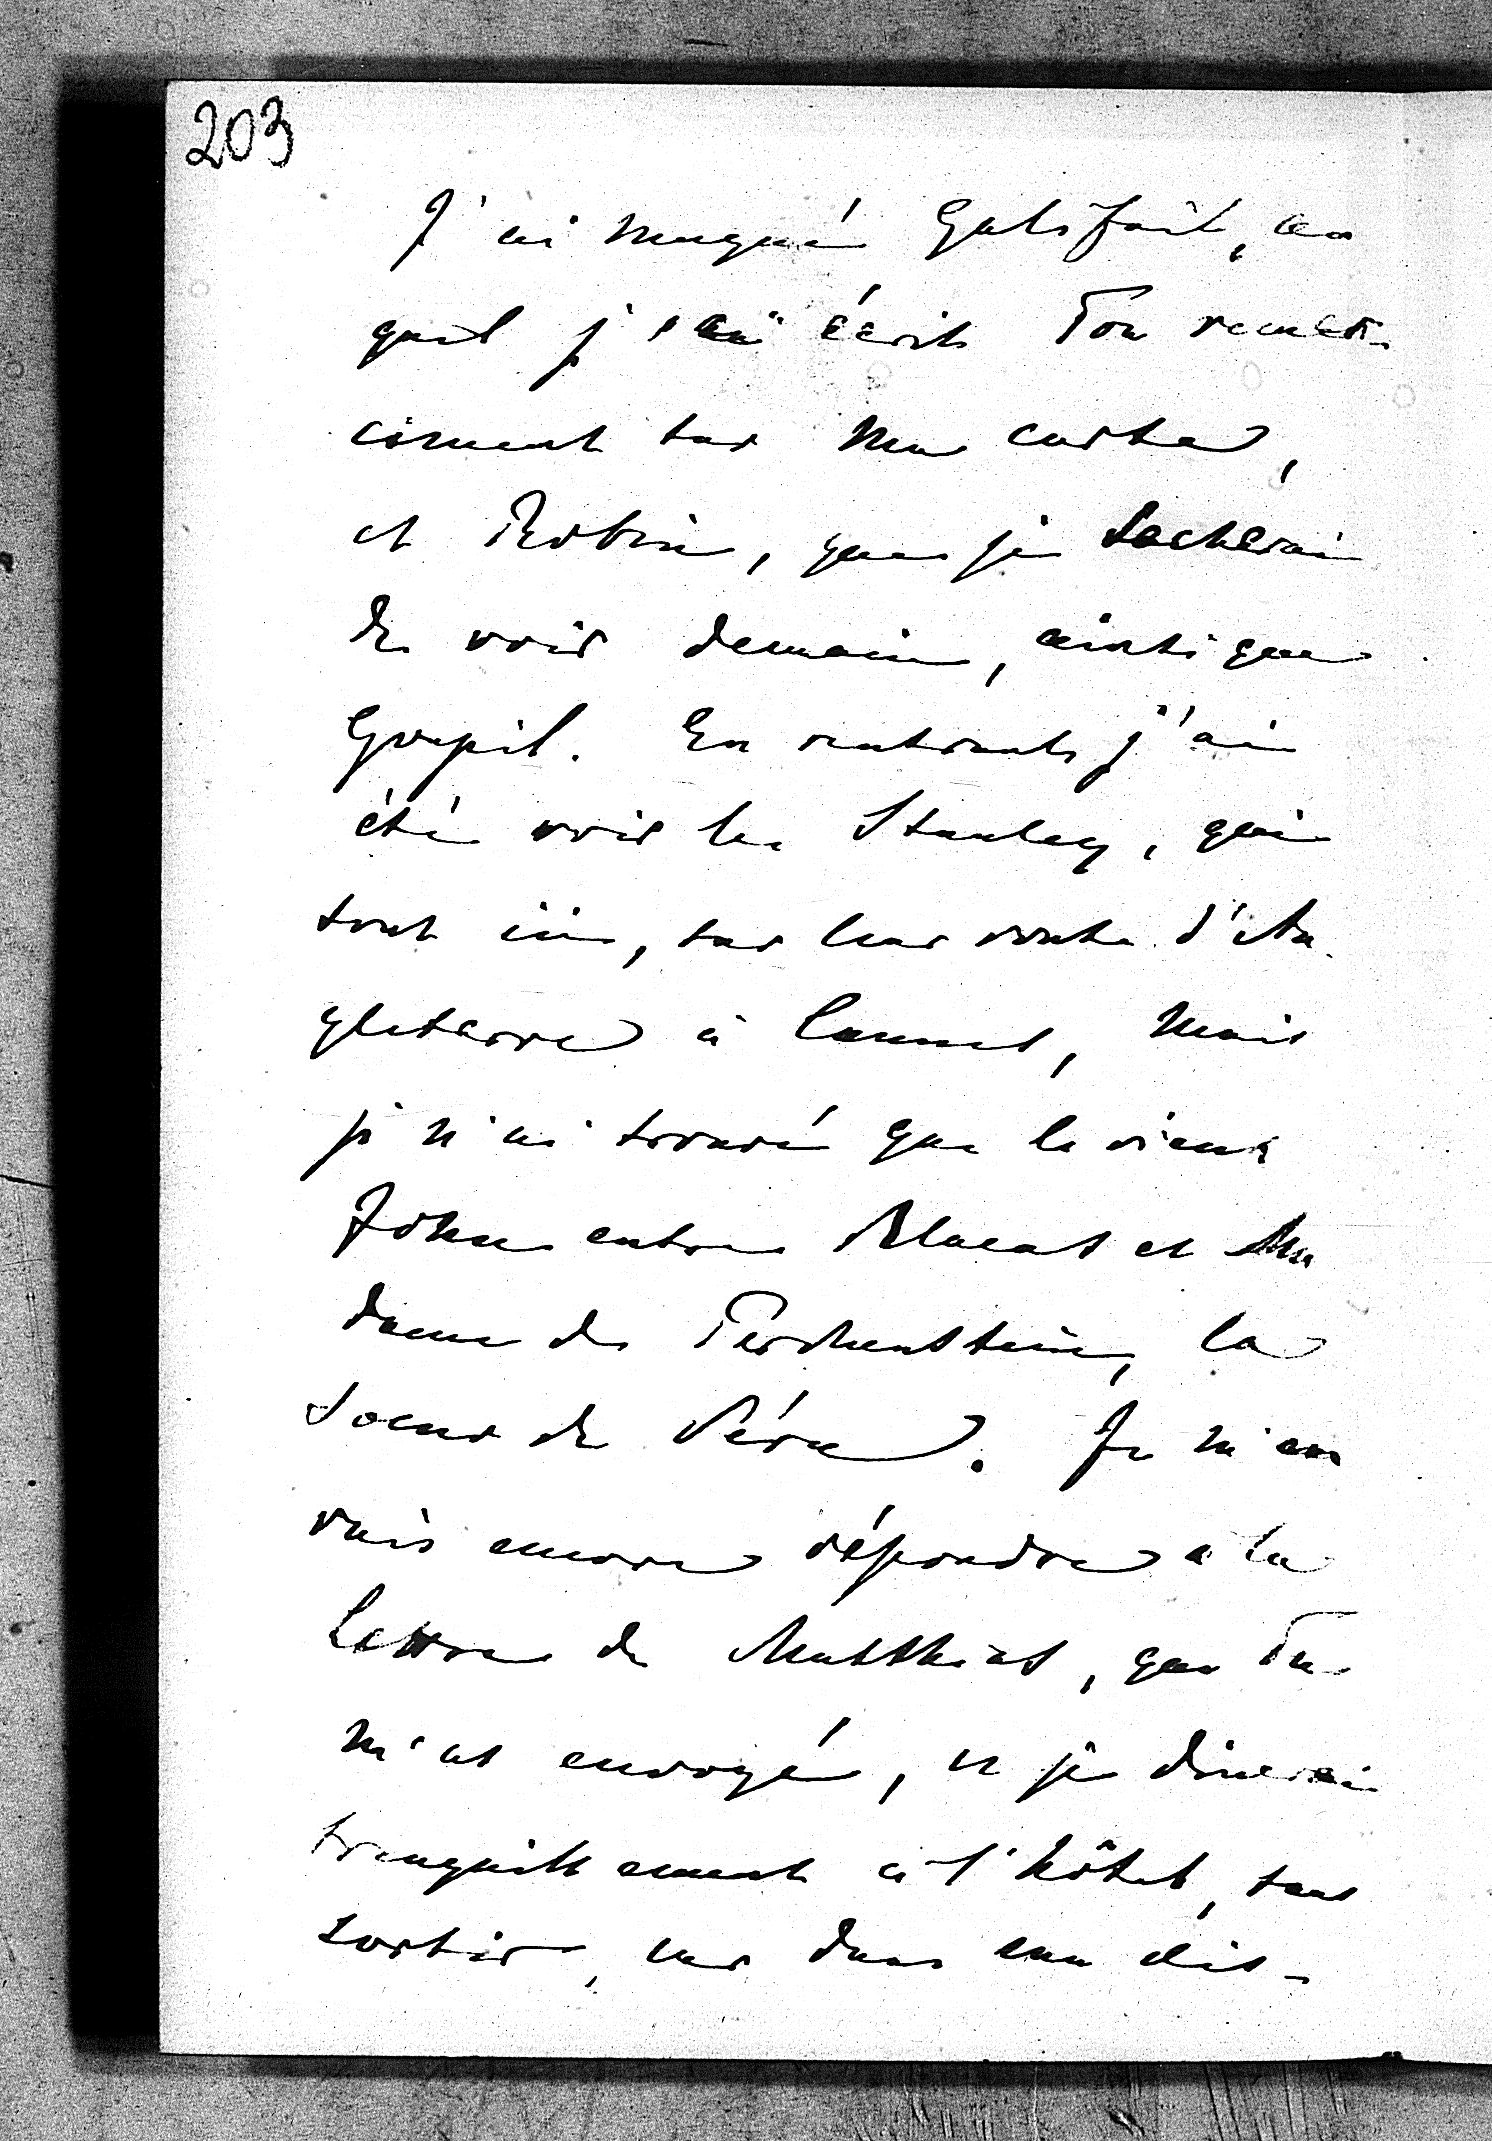 203
J'ai manqué Galifait, au
quel j'ai écrit Ton remer-
ciment sur ma carte,
et Robin, que je tacherai
de voir demain, ainsi que
Goupil. En rentrant j'ai
été voir les Stanley, qui
sont ici, sur leur route d'An
gleterre à Cannes, mais
je n'ai trouvé que le vieux
John entre Blacas et Ma
dame de Perchenstein, la
soeur de Péra. Je m'en
vais encore répondre à la
lettre de Matthias, que Tu
m'as envoyé, et je dinerai
tranquillement à l'hôtel, sans
sortir, car dans une dis-